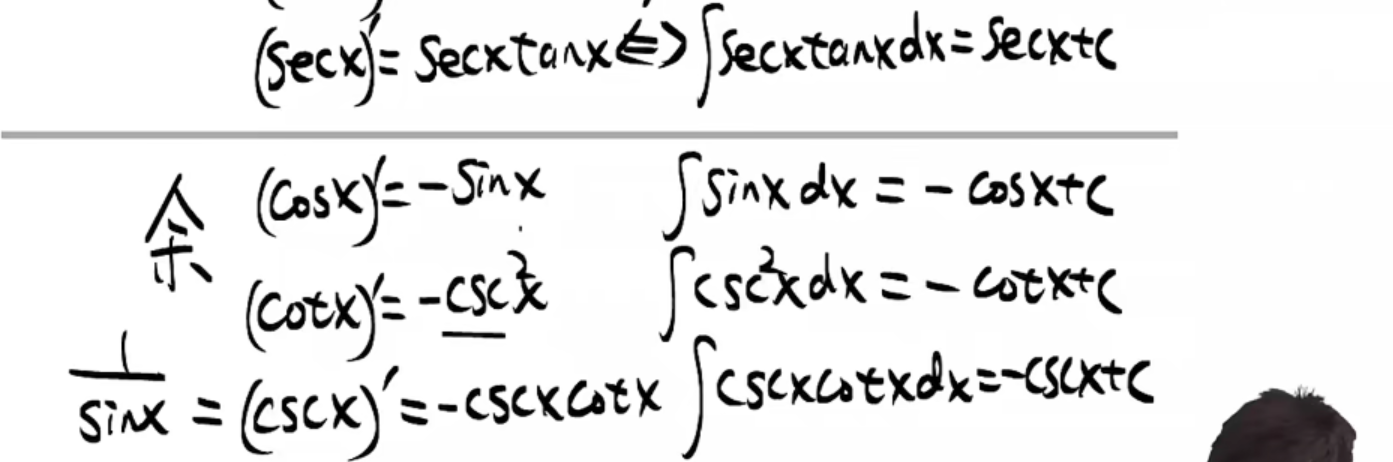 (secx)'= secxtanx⇔∫secxtanxdx=secx+c
余 (cosx)'=-sinx ∫sinxdx = - cosx+c
(cotx)'= -csc²x ∫csc²xdx = - cotx+c
1/sinx = (cscx)'=-cscxcotx ∫cscxcotxdx=-cscx+c